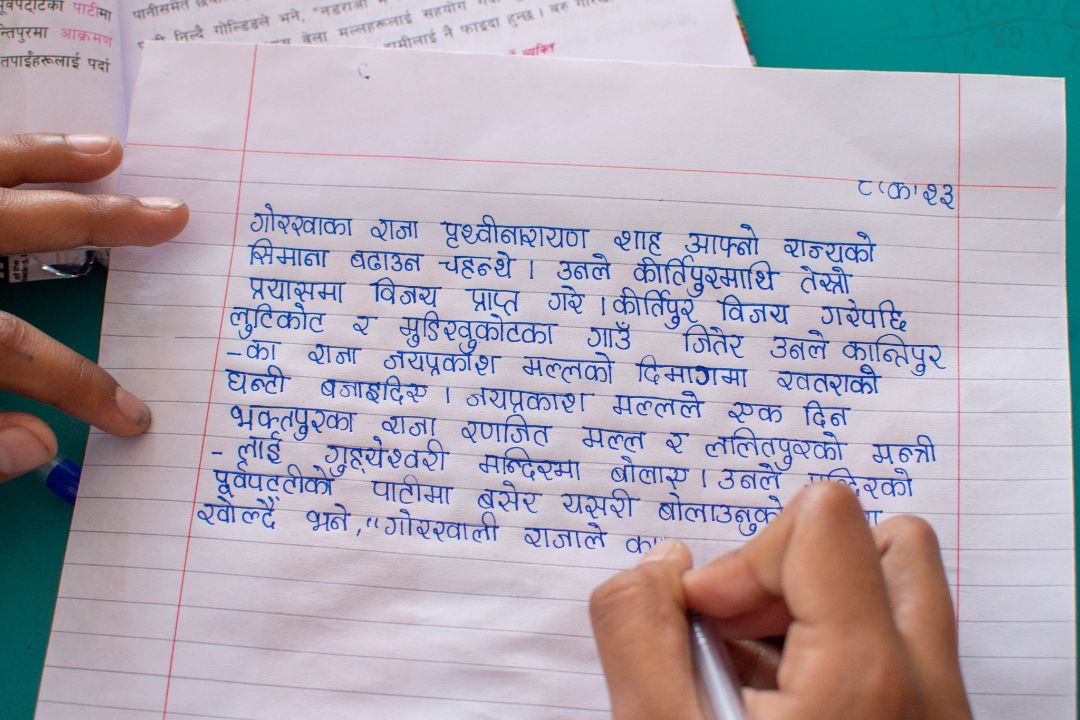 पूर्वपट्टिका पाटीमा
न्तिपुरमा आक्रमण
तपाईंहरूलाई पर्दा
पानीसमेत
गोल्डिडले भने,
बेला मल्लहरूलाई सहयोग
ने फाइदा हुन्छ । बरु
८ 'क' २३
गोरखाका राजा पृथ्वीनारायण शाह आफ्नो राज्यको
सिमाना बढाउन चहन्थे । उनले कीर्तिपुरमाथि तेस्रो
प्रयासमा विजय प्राप्त गरे । कीर्तिपुर विजय गरेपछि
लुटिकोट र मुडिखुकोटका गाउँ जितेर उनले कान्तिपुर
-का राजा जयप्रकाश मल्लको दिमागमा खतराको
घन्टी बजाइदिए । जयप्रकाश मल्लले एक दिन
भक्तपुरका राजा रणजित मल्ल र ललितपुरको मन्त्री
-लाई गुह्येश्वरी मन्दिरमा बोलाए । उनले मन्दिरको
पूर्वपट्टीको पाटीमा बसेर यसरी बोलाउनुको
खोल्दै भने, "गोरखाली राजाले